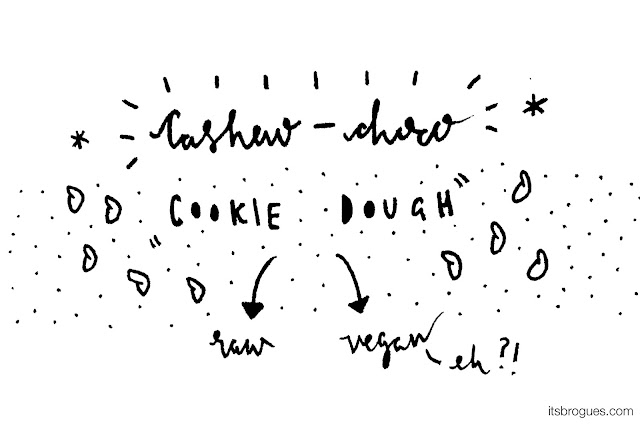 Cashew - choco
"COOKIE DOUGH"
raw vegan
eh?!
itsbrogues.com